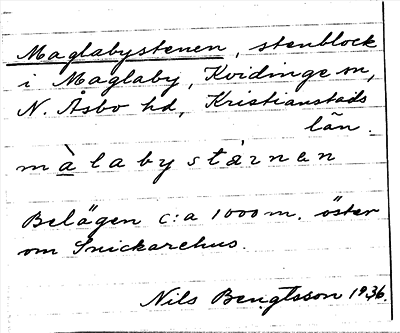 Maglabystenen, stenblock
i Maglaby, Kvidinge sn,
N. Åsbo hd, Kristianstads
län.
m à l a b y s t æ r n a n
Belägen c:a 1000 m. öster
om Snickarehus.
Nils Bengtsson 1936.